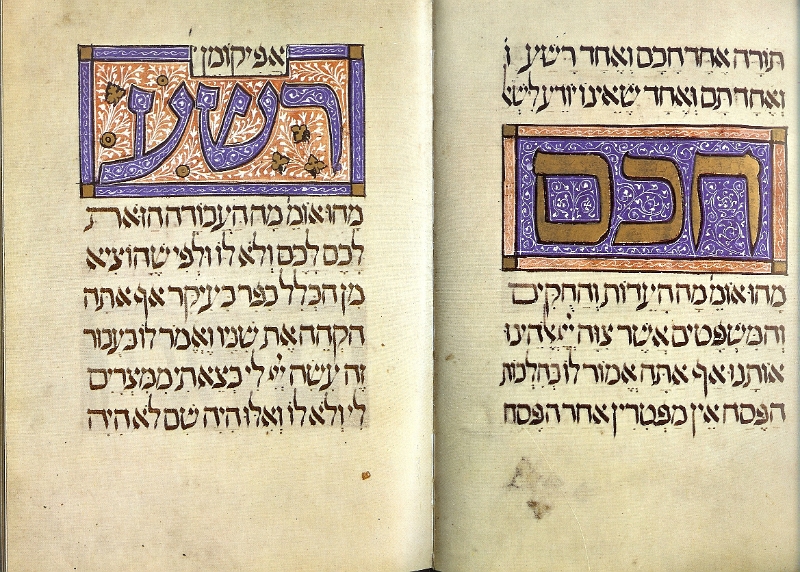 תורה אחד חכם ואחד רשע ו
ואחד תם ואחד שאינו יודע לישא
חכם
מה הוא אומ מה העדות והחקים
והמשפטים אשר צוה ייי אלהינו
אותנו אף אתה אמור לו כהלכות
הפסח אין מפטרין אחר הפסח
אפיקומן
רשע
מה הוא אומ מה העבודה הזאת
לכם לכם ולא לו ולפי שהוציא
מן הכלל כפר בעיקר אף אתה
הקהה את שניו ואמר לו בעבור
זה עשה ייי לי בצאתי ממצרים
לי ולא לו ואלו היה שם לא היה